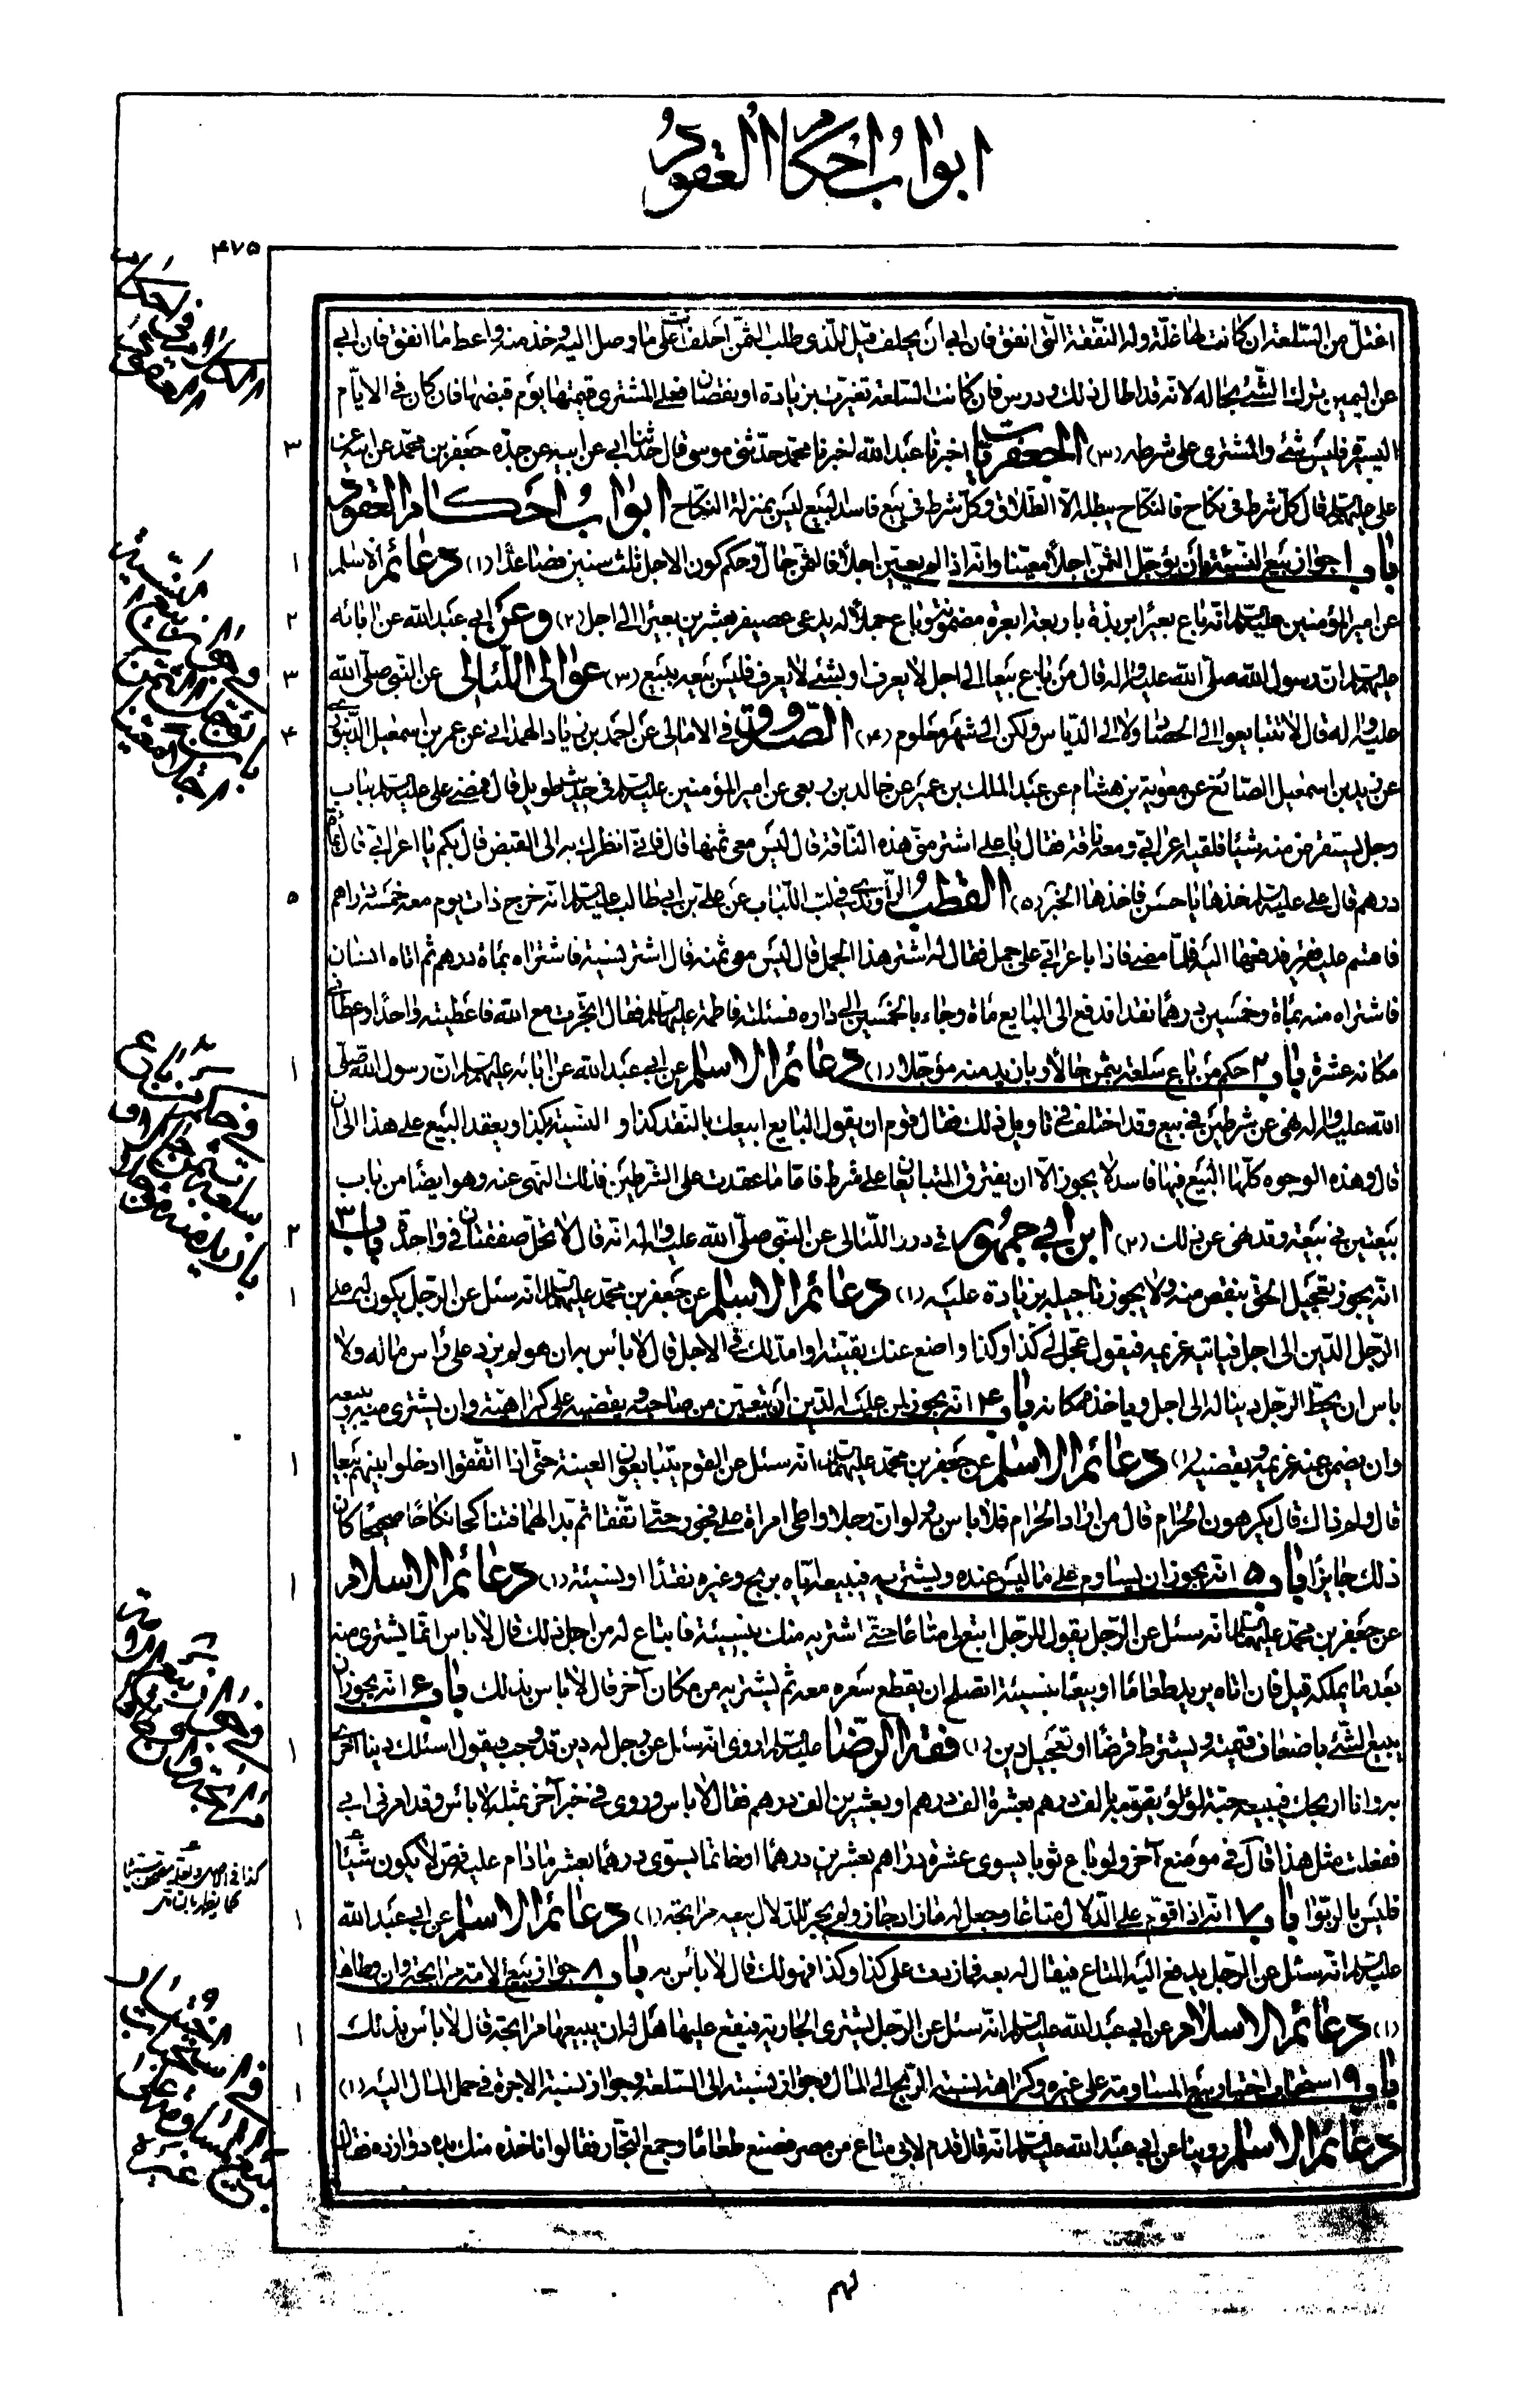 ابواب احكام العقود
۴۷۵
اغتلّ من السّلعة ان كانت لها غلّة وله النّفقة الّتى انفق فان ابى ان يحلف قيل للّذى طلب الثّمن احلف انت على ما وصل اليه وخذ منه واعط ما انفق فان ابى
عن اليمين يترك الشّئ بحاله لانّه قد اطال ذلك ودرس فان كانت السّلعة تغيّرت بزيادة او نقصان فعلى المشترى قيمتها يوم قبضها فان كان فى الايّام
اليسيرة فليس بشئ والمشترى على شرطه (۳) الجعفريّات اخبرنا عبد الله اخبرنا محمّد حدّثنى موسى قال حدّثنا ابى عن ابيه عن جدّه جعفر بن محمّد عن ابيه عن ۳
على عليهم السلام قال كلّ شرط فى نكاح فالنّكاح يبطله الّا الطّلاق وكلّ شرط فى بيع فاسد البيع ليس بمنزلة النّكاح ابواب احكام العقود
باب ۱ جواز بيع النّسيئة بأن يؤجّل الثّمن اجلا معيّنا وانّه اذا لم يعيّن اجلا فالثّمن حالّ وحكم كون الاجل ثلث سنين فصاعدا (۱) دعائم الاسلام ۱
عن امير المؤمنين عليه السلام انّه باع بعيرا بربذة باربعة ابعرة مضمونة وباع جملا له يدعى عصيفر بعشرين بعيرا الى اجل (۲) وعن ابى عبد الله عن ابائه ۲
عليهم السلام ان رسول الله صلّى الله عليه واله قال من باع بيعا الى اجل لا يعرف او بشئ لا يعرف فليس بيعه ببيع (۳) عوالى اللّئالى عن النّبى صلّى الله ۳
عليه واله قال لا تتبايعوا الى الحصاد ولا الى الدّياس ولكن الى شهر معلوم (۴) الصّدوق فى الامالى عن احمد بن زياد الهمدانى عن عمر بن اسمعيل الدّينورى ۴
عن زيد بن اسمعيل الصّائغ عن معوية بن هشام عن عبد الملك بن عمير عن خالد بن ربعى عن امير المؤمنين عليه السلام فى حديث طويل قال فمضى على عليه السلام بباب
رجل يستقرض منه شيئا فلقيه اعرابى ومعه ناقة فقال يا على اشتر منّى هذه النّاقة قال ليس معى ثمنها قال فانّى انظرك به الى القبض قال بكم يا اعرابى قال بمائة
درهم قال على عليه السلام خذها يا حسن فاخذها الخبر (۵) القطب الرّاوندى فى لبّ اللّباب عن على بن ابى طالب عليه السلام انّه خرج ذات يوم معه خمسة دراهم ۵
فاقسم عليه فقير فدفعها اليه فلمّا مضى فاذا باعرابى على جمل فقال له اشتر هذا الجمل قال ليس معى ثمنه قال اشتر نسية فاشتراه بمأة درهم ثم اتاه انسان
فاشتراه منه بمأة وخمسين درهما نقدا فدفع الى البايع مأة وجاء بالخمسين الى داره فسئلته فاطمة عليها السلام فقال اتّجرت مع الله فاعطيته واحدا واعطانى
مكانه عشرة باب ۲ حكم من باع سلعة بثمن حالّا وبازيد منه مؤجّلا (۱) دعائم الاسلام عن ابى عبد الله عن ابائه عليهم السلام ان رسول الله صلّى ۱
الله عليه واله نهى عن شرطين فى بيع وقد اختلف فى تاويل ذلك فقال قوم ان يقول البايع ابيعك بالنّقد كذا وبالنّسيّة بكذا ويعقد البيع على هذا الى ان
قال وهذه الوجوه كلّها البيع فيها فاسد لا يجوز الّا ان يفترق المتبايعان على شرط فامّا ما عقدت على الشّرطين فذلك النّهى عنه وهو ايضا من باب
بيعتين فى بيعة وقد نهى عن ذلك (۲) ابن ابى جمهور فى درر اللّئالى عن النّبى صلّى الله عليه واله انّه قال لا تحلّ صفقتان فى واحدة باب ۳ ۲
انّه يجوز تعجيل الحقّ بنقص منه ولا يجوز تاجيله بزيادة عليه (۱) دعائم الاسلام عن جعفر بن محمّد عليهما السلام انّه سئل عن الرّجل يكون له على ۱
الرّجل الدّين الى اجل فياتيه غريمه فيقول عجّل لى كذا وكذا واضع عنك بقيّته او امدّ لك فى الاجل قال لا بأس به ان هو لم يزد على رأس ماله ولا
بأس ان يحطّ الرّجل دينا له الى اجل وياخذ مكانه باب ۴ انّه يجوز لمن عليه الدّين ان يتعيّن من صاحبه ويقضيه على كراهيّة وان يشترى منه ويبيعه
وان يضمن عنه غريمه ويقضيه (۱) دعائم الاسلام عن جعفر بن محمّد عليهما السلام انّه سئل عن القوم يتبايعون العينة حتّى اذا اتّفقوا ادخلوا بينهم بيعا ۱
قال ولم ذاك قال يكرهون الحرام قال من اراد الحرام فلا بأس به ولو ان رجلا واطى امراة على فجور حتّى اتّفقا ثم بدا لهما فتناكحا نكاحا صحيحا كان
ذلك جايزا باب ۵ انّه يجوز ان يساوم على ما ليس عنده ويشتريه فيبيعه ايّاه بربح وغيره نقدا ونسيئة (۱) دعائم الاسلام ۱
عن جعفر بن محمّد عليهما السلام انّه سئل عن الرّجل يقول للرّجل ابتع لى متاعا حتّى اشتريه منك بنسيئة فابتاع له من اجل ذلك قال لا بأس انّما يشترى منه
بعد ما يملكه قيل فان اتاه يريد طعاما او بيعا بنسيئة ايصلح ان يقطع سعره معه ثم يشتريه من مكان آخر قال لا بأس بذلك باب ۶ انّه يجوز ان
يبيع الشّئ باضعاف قيمته ويشترط قرضا او تعجيل دين (۱) فقه الرّضا عليه السلام روى انّه سئل عن رجل له دين قد وجب فيقول اسئلك دينا آخر ۱
به وانا اربحك فيبيعه حبّة لؤلؤ يقوّمه بالف درهم بعشرة الف درهم او بعشرين الف درهم فقال لا بأس وروى فى خبر آخر بمثله لا بأس وقد امرنى ابى
ففعلت مثل هذا قال فى موضع آخر ولو باع ثوبا يسوى عشرة دراهم بعشرين درهما او خاتما يسوّى درهما بعشر ما دام عليه فصّ لا يكون شيئا
فليس بالرّبوا باب ۷ انّه اذا قوّم على الدّلّال متاعا وجعل له ما زاد جاز ولم يجز للدّلّال بيعه مرابحة (۱) دعائم الاسلام عن ابى عبد الله ۱
عليه السلام انّه سئل عن الرّجل يدفع اليه المتاع فيقال له بعه فما زدت على كذا وكذا فهو لك قال لا بأس به باب ۸ جواز بيع الامة مرابحة وان وطأها
(۱) دعائم الاسلام عن ابى عبد الله عليه السلام انّه سئل عن الرّجل يشترى الجارية فيقع عليها هل له ان يبيعها مرابحة قال لا بأس بذلك ۱
باب ۹ استحباب اختيار بيع المساومة على غيره وكراهة نسبة الرّبح الى المال وجواز نسبته الى السّلعة وجواز نسبة الاجرة فى حمل المال اليه (۱) ۱
دعائم الاسلام روينا عن ابى عبد الله عليه السلام انّه قال قدم لابى متاع من مصر فصنع طعاما وجمع التجّار فقالوا ناخذه منك بده دوازده فقال
لهم